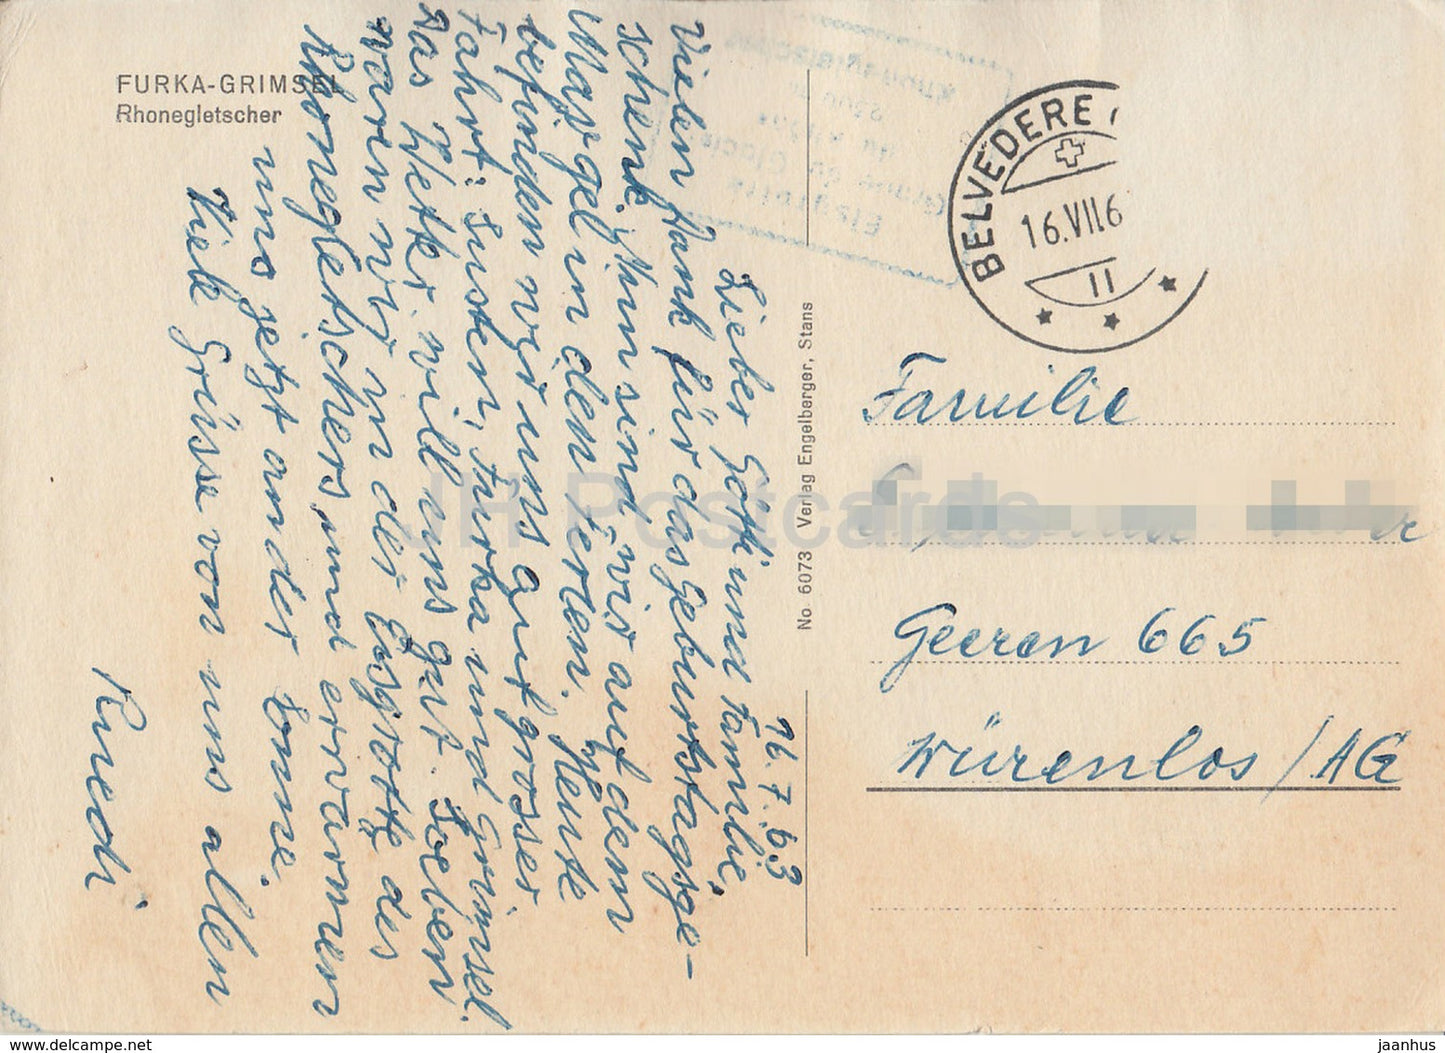 FURKA-GRIMSEL
Rhonegletscher
16.7.63
Lieber Götti und Familie,
Vielen Dank für das Geburtstagsge-
schenk. Nun sind wir auf dem
in dem Ferien. Heute
befinden wir uns auf grosser
Fahrt: Susten, Furka und Grimsel.
Das Wetter will uns gut. Soeben
waren wir in der Eisgrotte des
Rhonegletschers und erwärmen
uns jetzt an der Sonne.
Liebe Grüsse von uns allen
Ruedi
No. 6073 Verlag Engelberger, Stans
BELVEDERE
16.VII.6
11
Familie
Geeren 665
Würenlos/AG
JH Postcards
www.delcampe.net
jaanhus